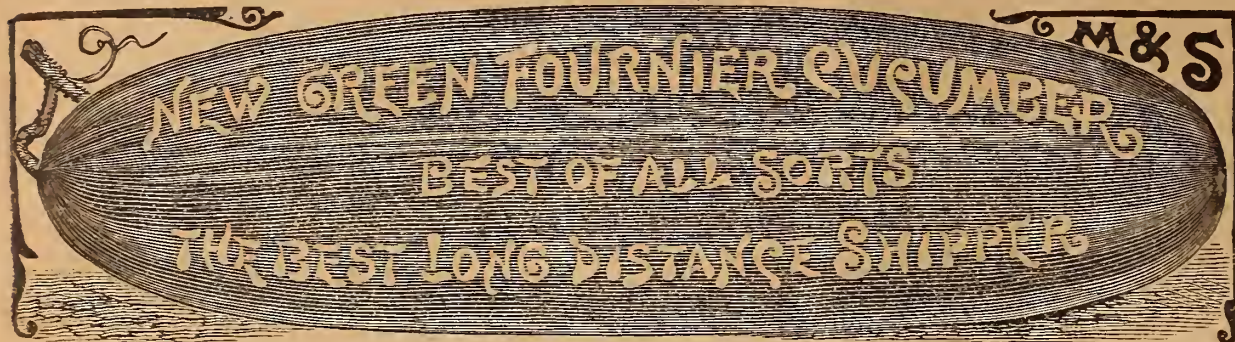 NEW GREEN FOURNIER CUCUMBER
M & S
BEST OF ALL SORTS
THE BEST LONG DISTANCE SHIPPER